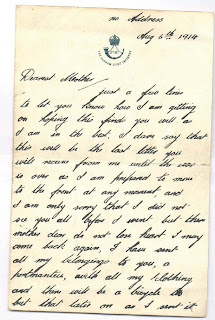 no Address
Aug 6th 1914
Dearest Mother
just a few lines
to let you know how I am getting
on hoping this finds you well as
I am in the best, I dare say that
this will be the last letter you
will receive from me until the war
is over as I am prepared to move
to the front at any moment and
I am only sorry that I did not
see you all before I went but then
mother dear do not lose heart I may
come back again, I have sent
all my belongings to you, a
portmanteau, with all my clothing
and there will be a bicycle
but that later on as I sent it